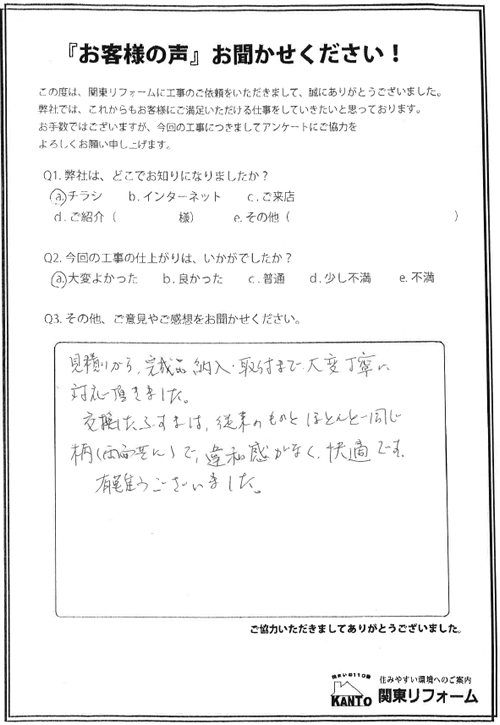 『お客様の声』お聞かせください！
この度は、関東リフォームに工事のご依頼をいただきまして、誠にありがとうございました。
弊社では、これからもお客様にご満足いただける仕事をしていきたいと思っております。
お手数ではございますが、今回の工事につきましてアンケートにご協力を
よろしくお願い申し上げます。
Q1. 弊社は、どこでお知りになりましたか？
a. チラシ b. インターネット c. ご来店
d. ご紹介（ 様） e. その他（ ）
Q2. 今回の工事の仕上がりは、いかがでしたか？
a. 大変よかった b. 良かった c. 普通 d. 少し不満 e. 不満
Q3. その他、ご意見やご感想をお聞かせください。
見積りから、完成品納入・取付まで大変丁寧に
対応頂きました。
交換したふすまは、従来のものとほとんど同じ
柄（両面共に）で、違和感がなく、快適です。
有難うございました。
ご協力いただきましてありがとうございました。
住まいの110番
KANTO
住みやすい環境へのご案内
関東リフォーム